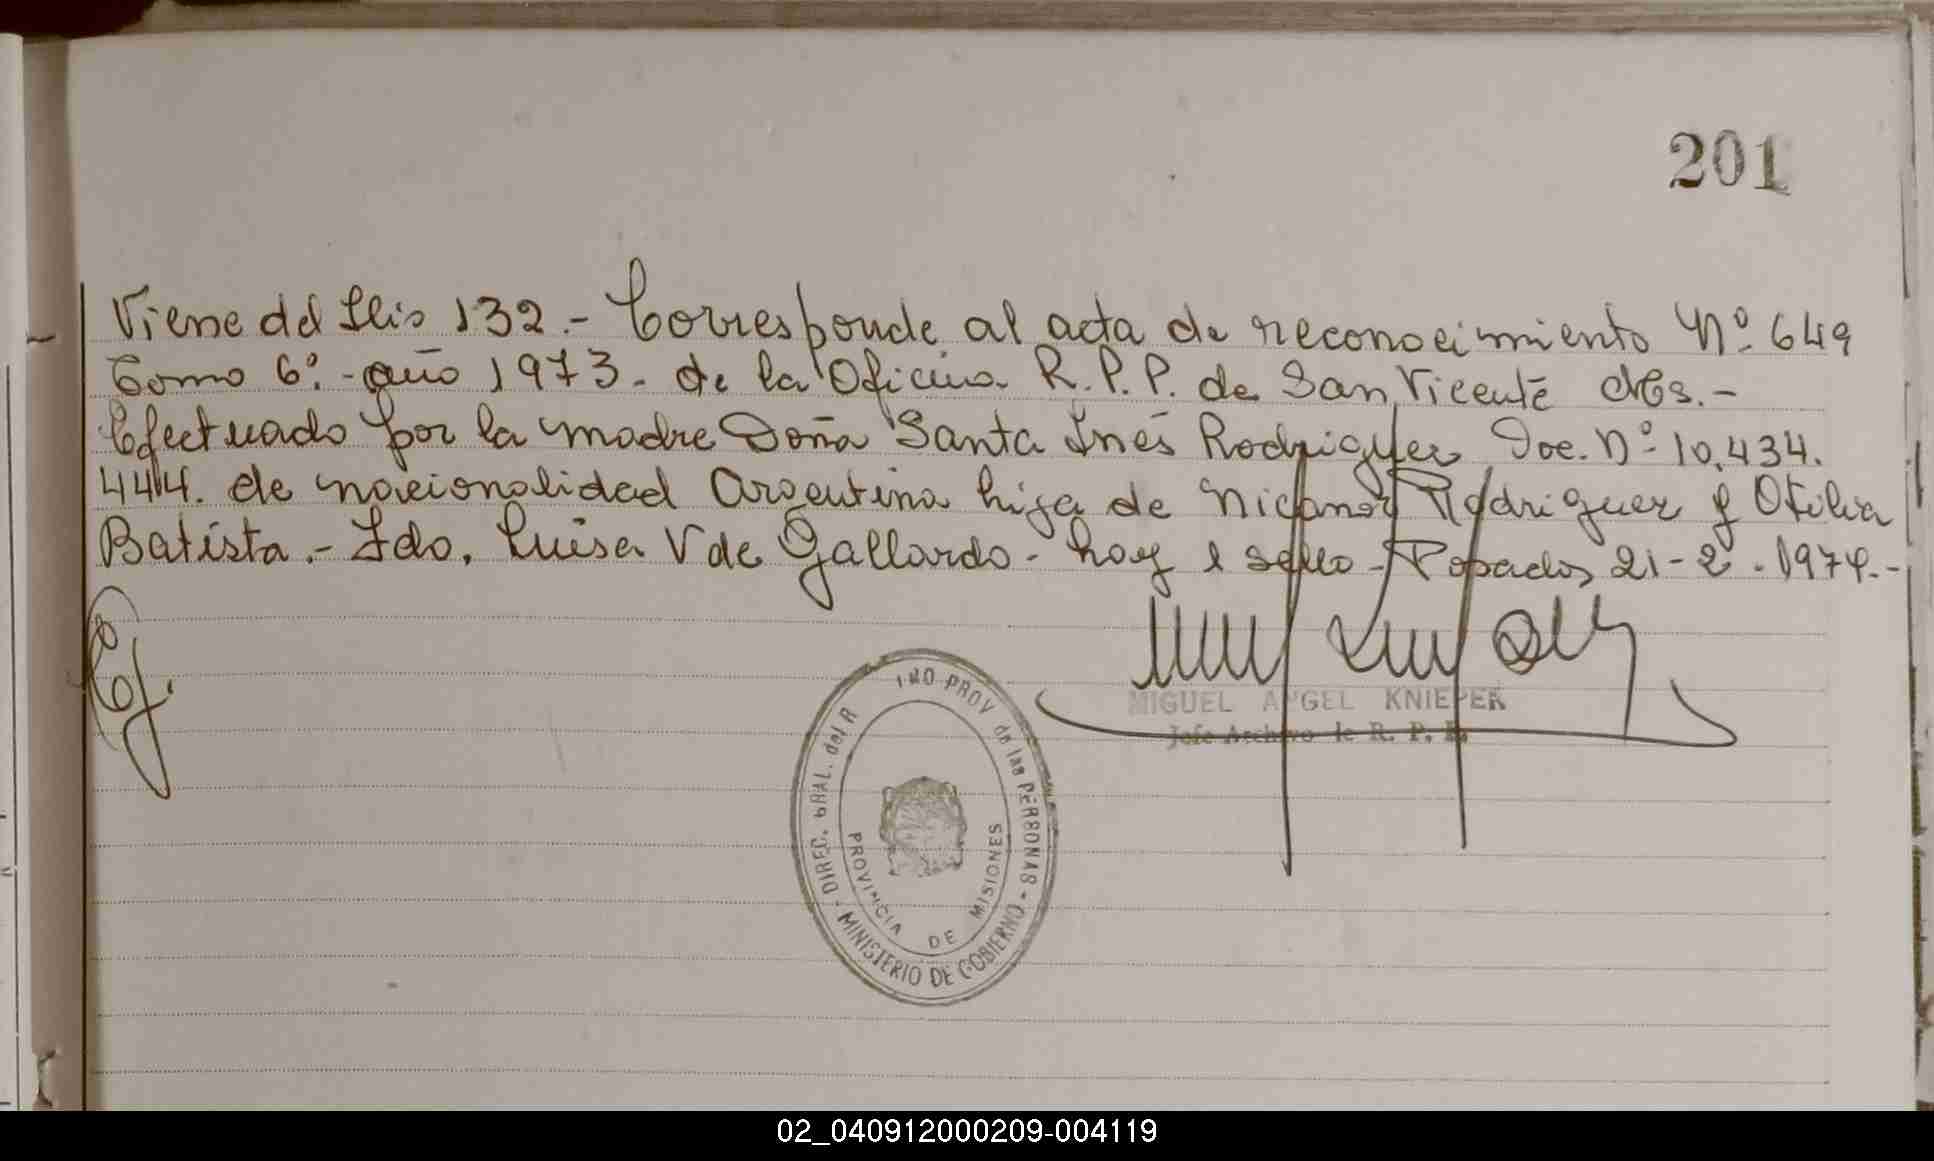 201
Viene del flio 132.- Corresponde al acta de reconocimiento Nº 649
Tomo 6º.- año 1973.- de la Oficina R.P.P. de San Vicente Mes.-
Efectuado por la madre Doña Santa Inés Rodriguez Doc. Nº 10.434.
444. de nacionalidad Argentina hija de Nicanor Rodriguez y Otilia
Batista.- Fdo. Luisa V de Gallardo - hay 1 sello - Posadas, 21-2-1974.-
MIGUEL ANGEL KNIEPER
Jefe Archivo de R. P. P.
DIREC. GRAL. del R PROV de las PERSONAS - MINISTERIO DE GOBIERNO -
PROVINCIA DE MISIONES
02_040912000209-004119